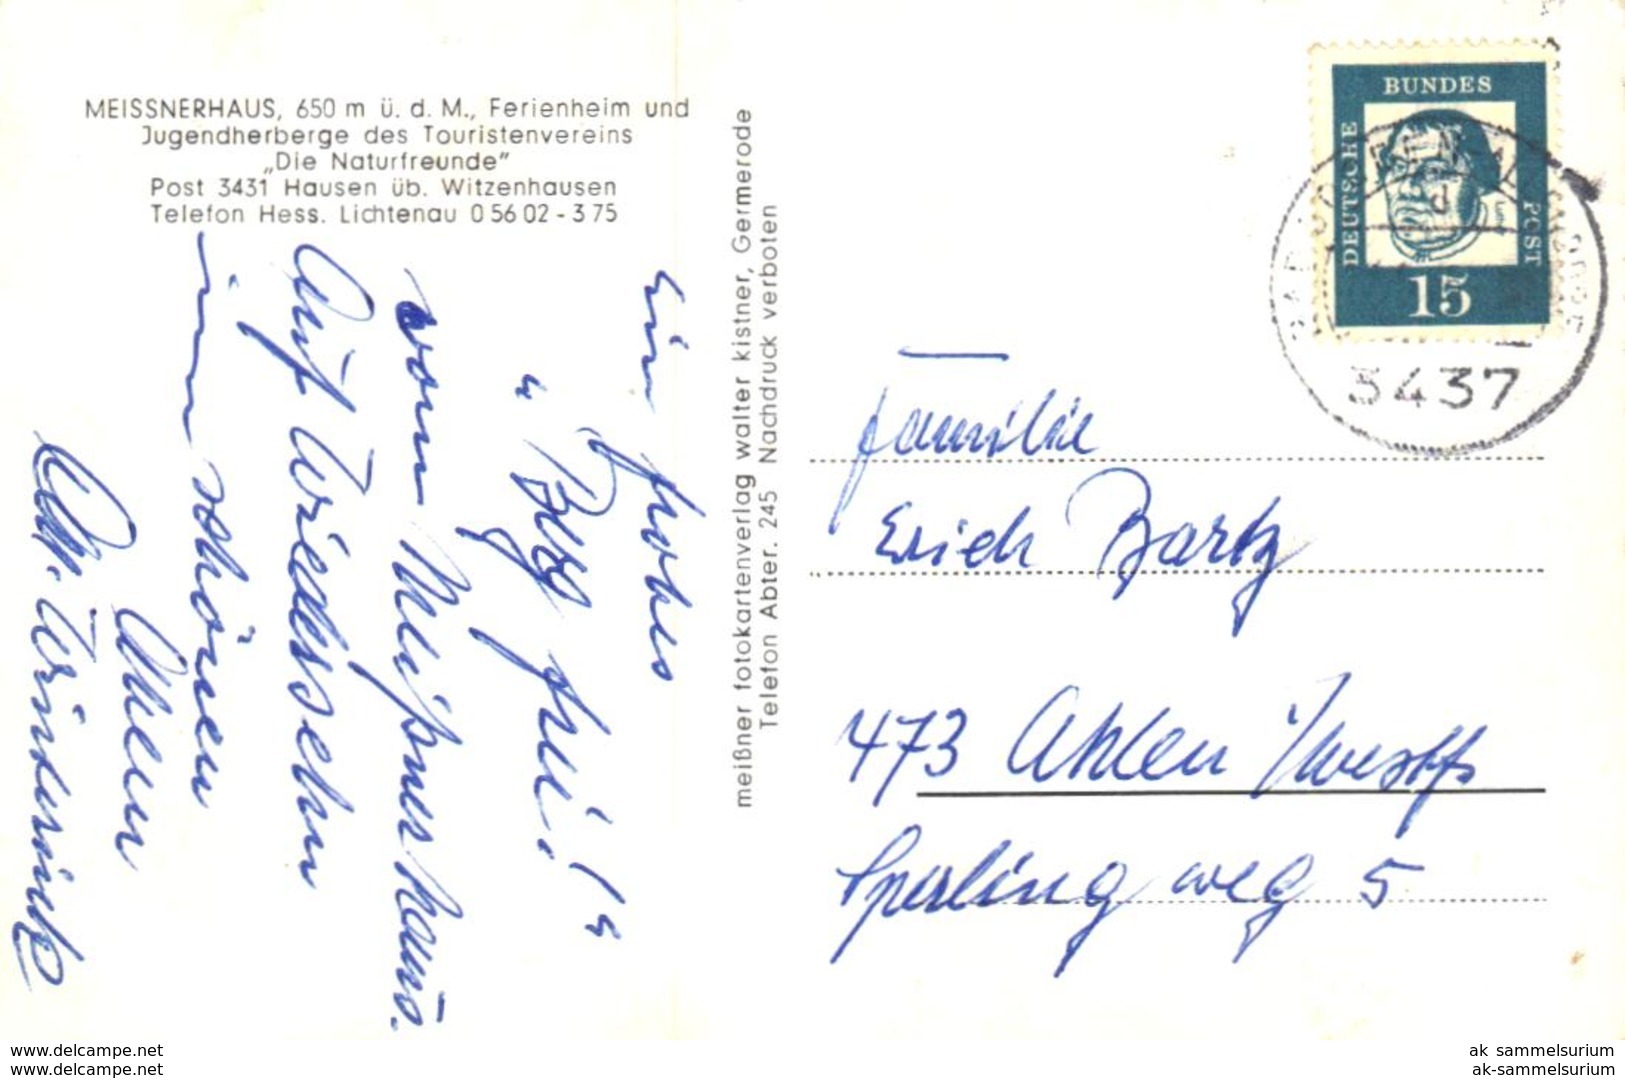 MEISSNERHAUS, 650 m ü. d. M., Ferienheim und
Jugendherberge des Touristenvereins
„Die Naturfreunde"
Post 3431 Hausen üb. Witzenhausen
Telefon Hess. Lichtenau 0 56 02 - 3 75
Ein frohes
„Berg frei!"
vom Meißnerhaus.
Auf Wiedersehn
im schönen
Ahlen
meißner fotokartenverlag walter kistner, Germerode
Telefon Abter. 245 Nachdruck verboten
DEUTSCHE
BUNDES
POST
15
d
3437
Familie
Erich Bartz
473 Ahlen /Westf
Sperlingweg 5
www.delcampe.net
www.delcampe.net
ak_sammelsurium
ak-sammelsurium